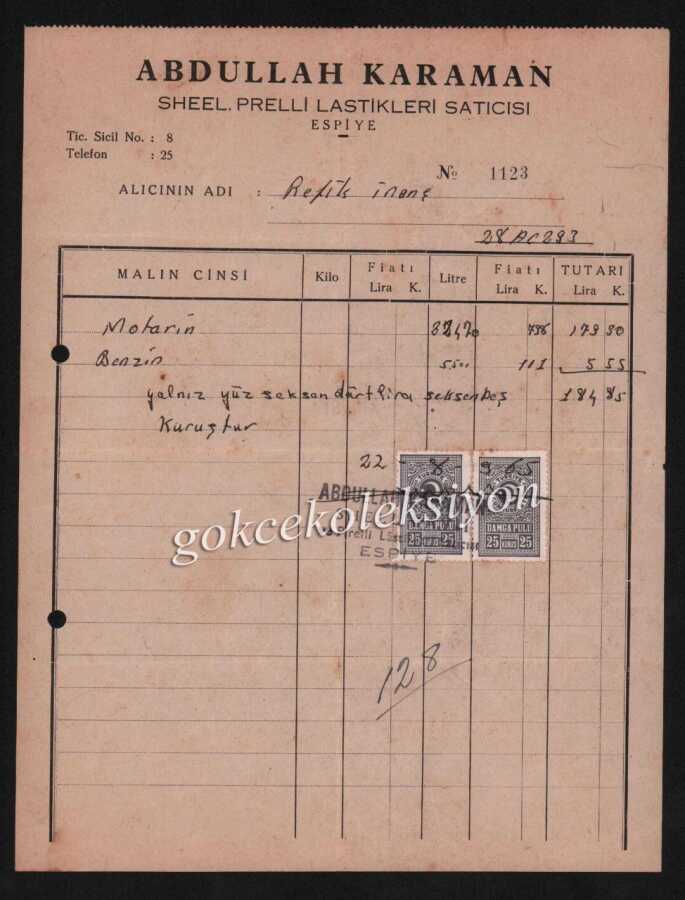 ABDULLAH KARAMAN
SHEEL. PRELLİ LASTİKLERİ SATICISI
ESPİYE
Tic. Sicil No. : 8
Telefon : 25
№ 1123
ALICININ ADI : Refik inanç
28 AC 293
MALIN CİNSİ Kilo Fiatı Lira K. Litre Fiatı Lira K. TUTARI Lira K.
Motarin 736 179 30
Benzin 5500 111 5 55
yalnız yüz seksen dört lira seksen beş 184 85
Kuruştur
22 - 8 - 965
ABDULLAH
Prelli
ESPİYE
DAMGA PULU
25 KURUŞ 25
DAMGA PULU
25 KURUŞ 25
gokcekoleksiyon
128